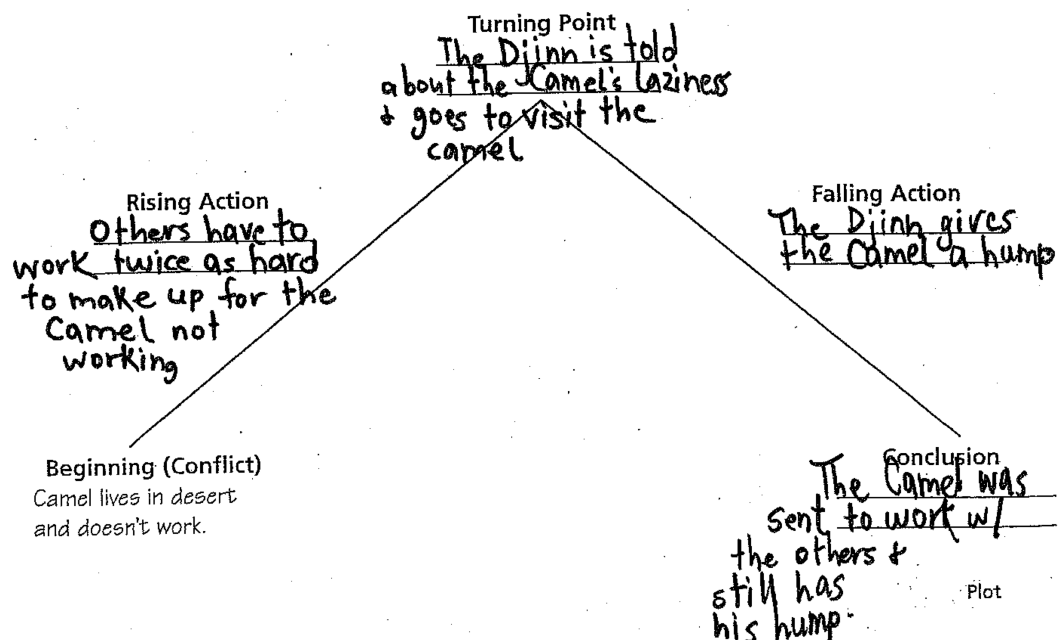 Turning Point
The Djinn is told
about the Camel's laziness
& goes to visit the
camel
Rising Action
Others have to
work twice as hard
to make up for the
Camel not
working
Falling Action
The Djinn gives
the Camel a hump
Beginning (Conflict)
Camel lives in desert
and doesn't work.
Conclusion
The Camel was
sent to work w/
the others &
still has
his hump.
Plot